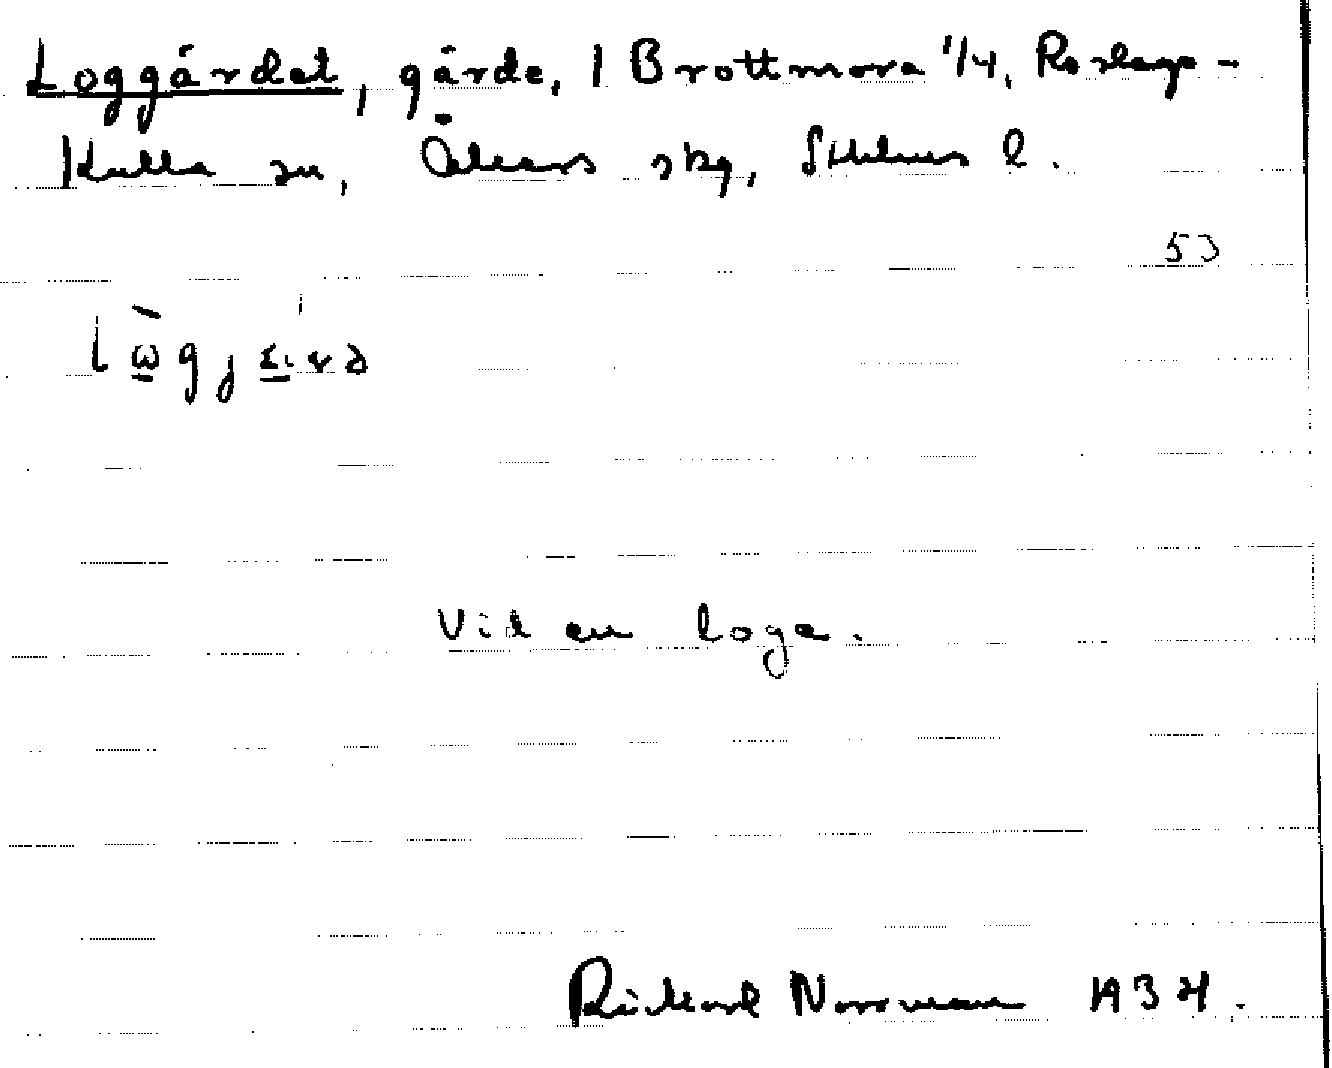 Loggärdet, gärde, 1 Brottmora 1/4, Roslags-
Kulla sn, Åkers skg, Sthlms l.
53
Vid en loge.
Rickard Norrman 1934.